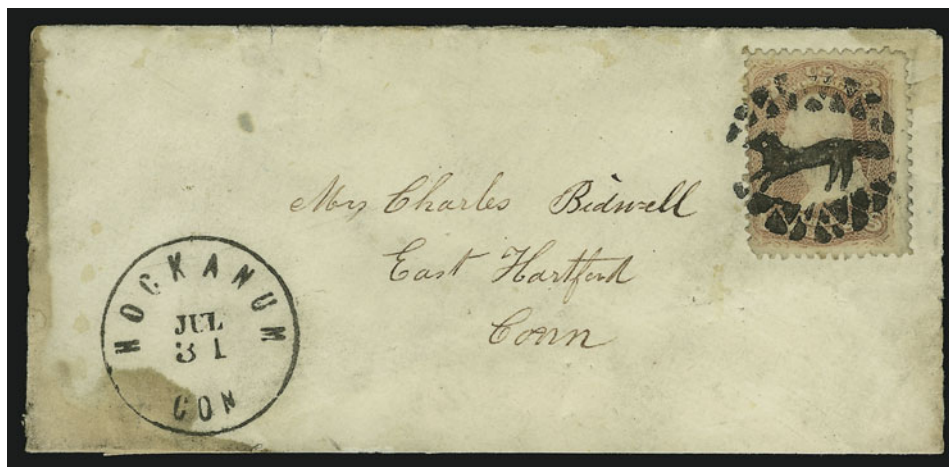 Mrs Charles Bidwell
East Hartford
Conn
HOCKANUM
JUL
31
CON